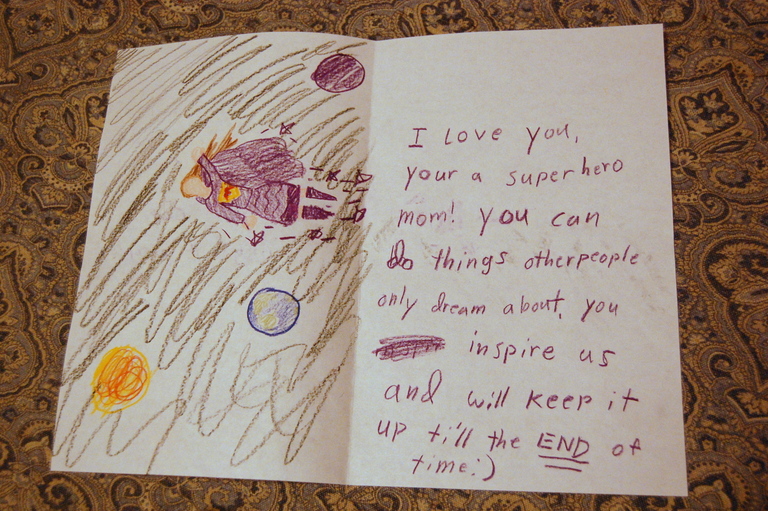 I love you,
your a superhero
mom! you can
do things otherpeople
only dream about, you
inspire us
and will keep it
up till the END of
time:)